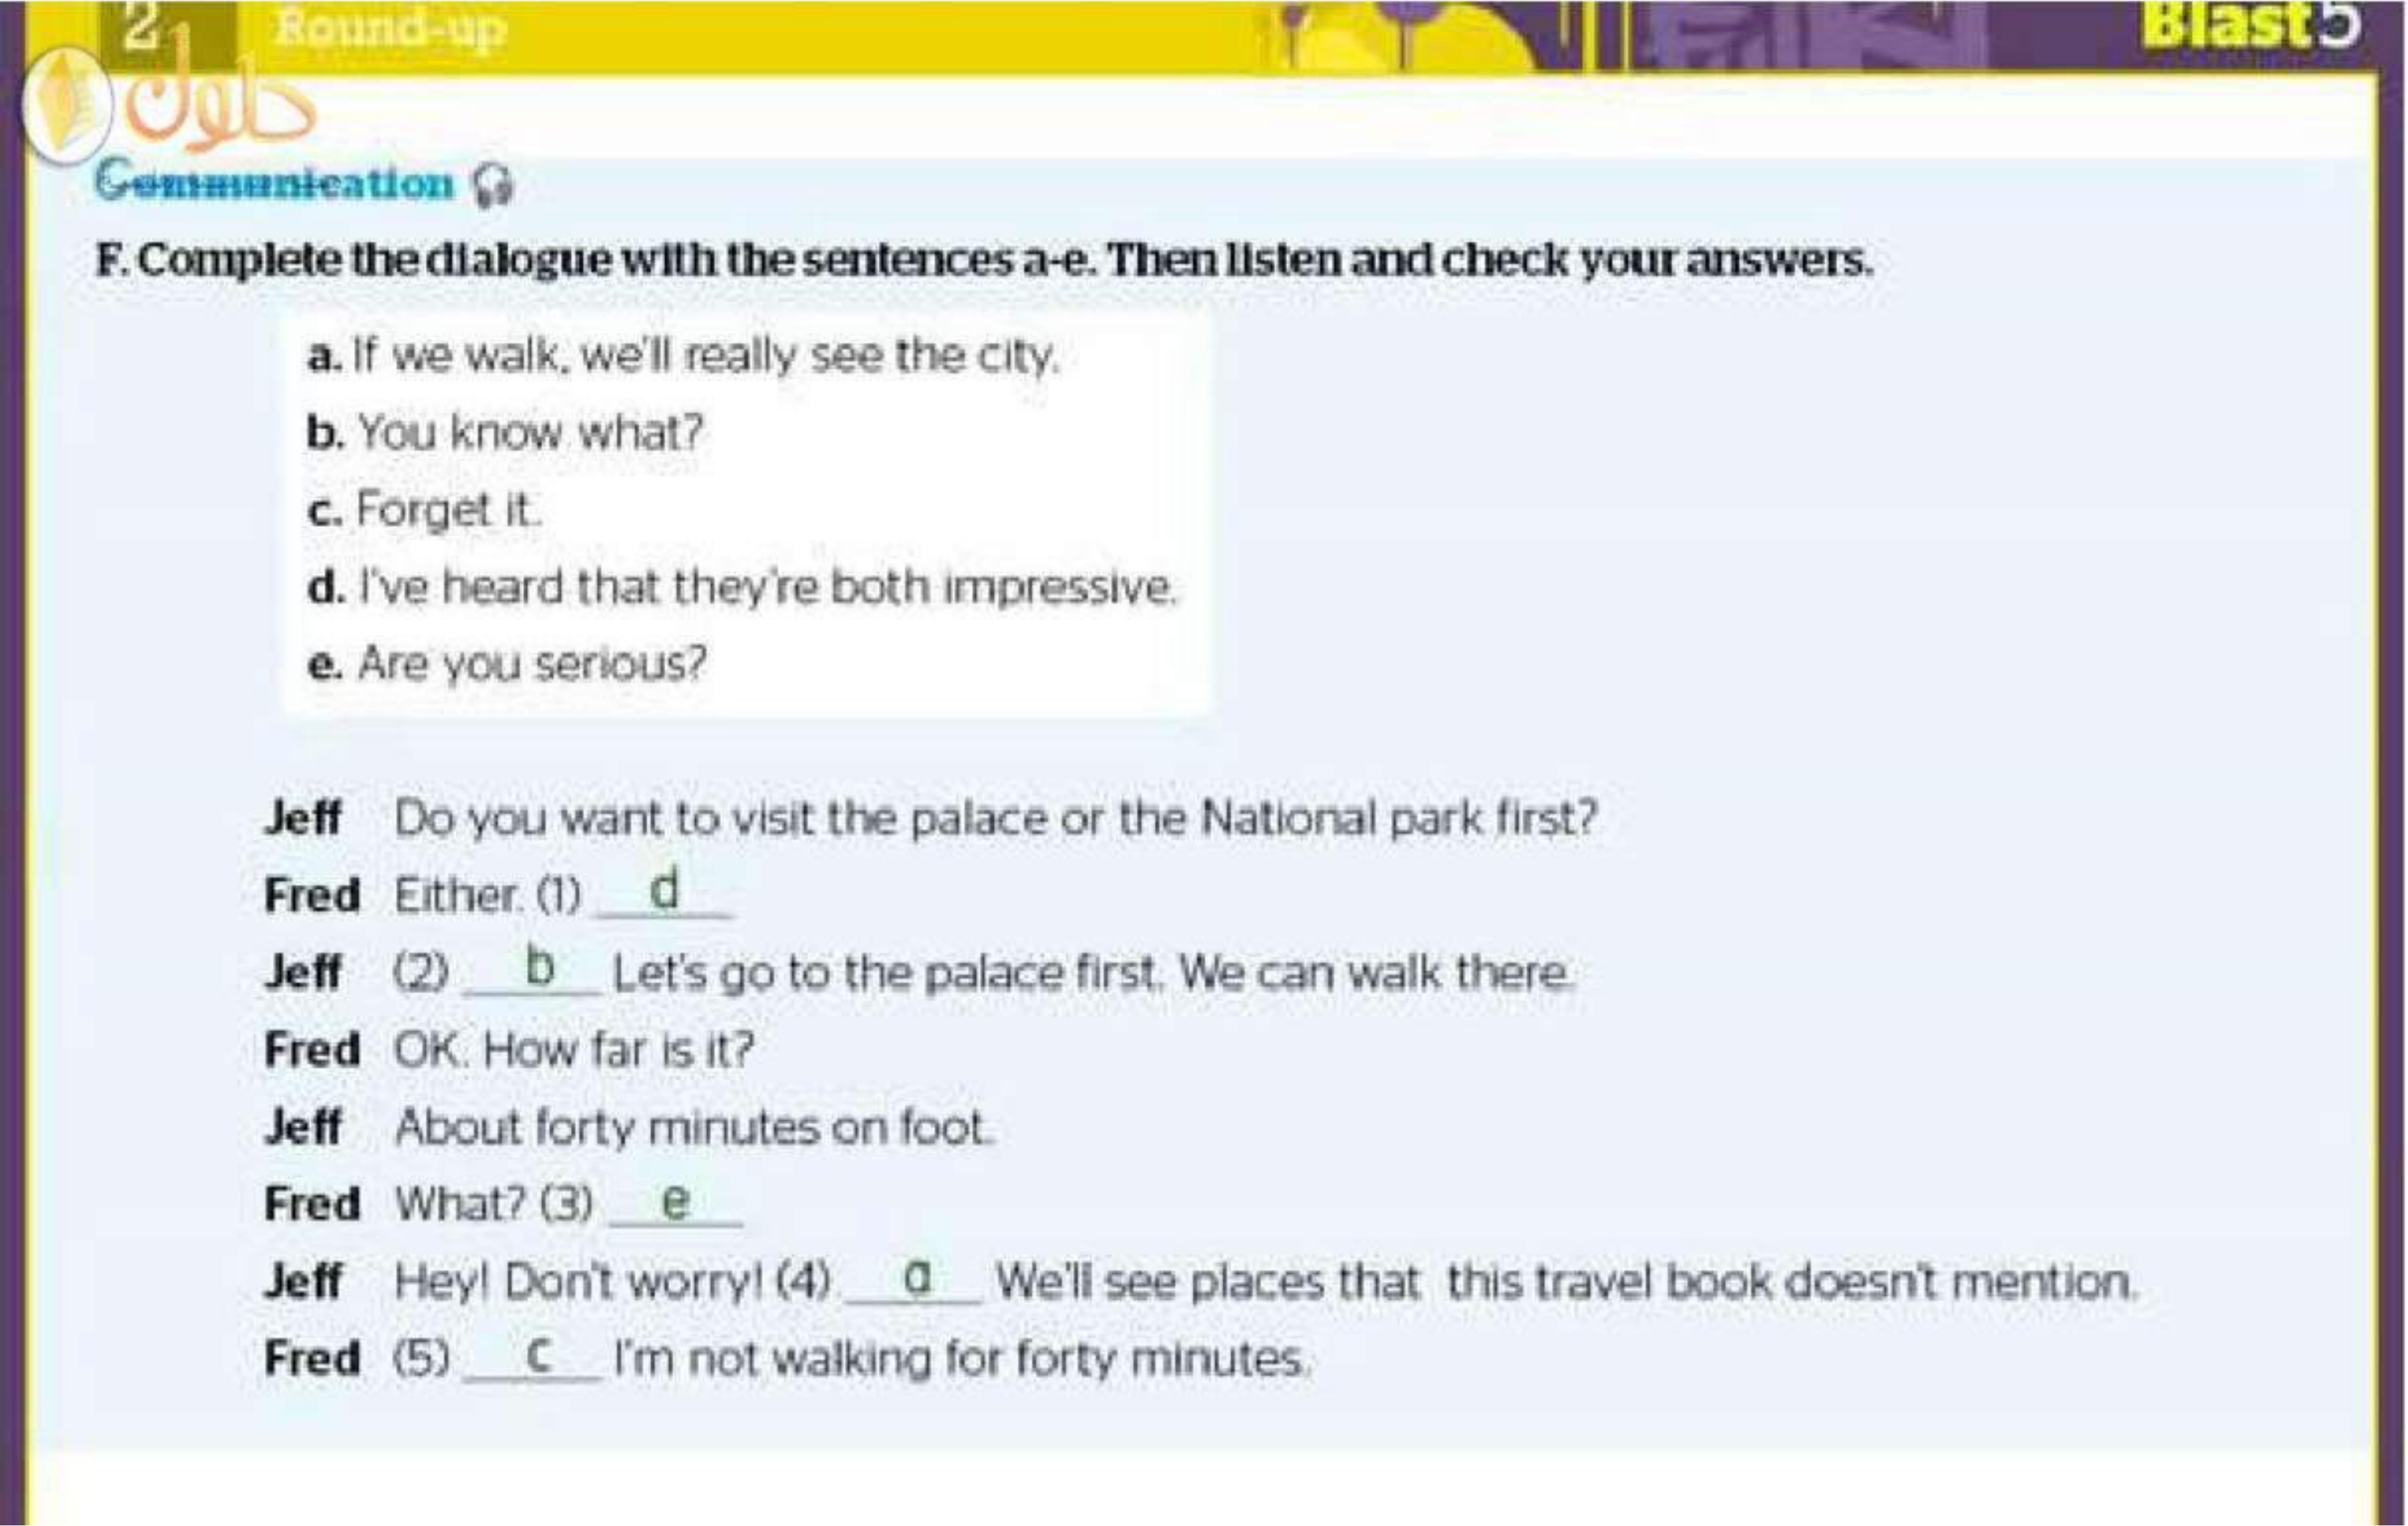 2 Round-up
Blast 5
حلول
Communication
F. Complete the dialogue with the sentences a-e. Then listen and check your answers.
a. If we walk, we'll really see the city.
b. You know what?
c. Forget it.
d. I've heard that they're both impressive.
e. Are you serious?
Jeff Do you want to visit the palace or the National park first?
Fred Either. (1) d
Jeff (2) b Let's go to the palace first. We can walk there.
Fred OK. How far is it?
Jeff About forty minutes on foot.
Fred What? (3) e
Jeff Hey! Don't worry! (4) a We'll see places that this travel book doesn't mention.
Fred (5) c I'm not walking for forty minutes.